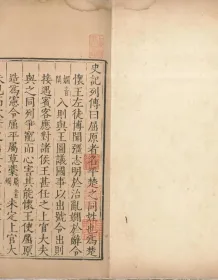 史記列傳曰屈原者名平楚之同姓也爲楚
懷王左徒博聞彊志明於治亂嫺於辭令
入則與王圖議國事以出號令出則
接遇賓客應對諸侯王甚任之上官大夫
與之同列爭寵而心害其能懷王使屈原
造爲憲令屈平屬草藁未定上官大